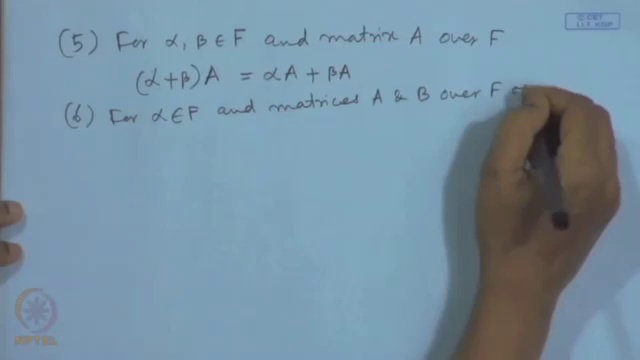 © CET
I.I.T. KGP
(5) For α, β ∈ F and matrix A over F
(α+β)A = αA + βA
(6) For α ∈ F and matrices A & B over F
NPTEL